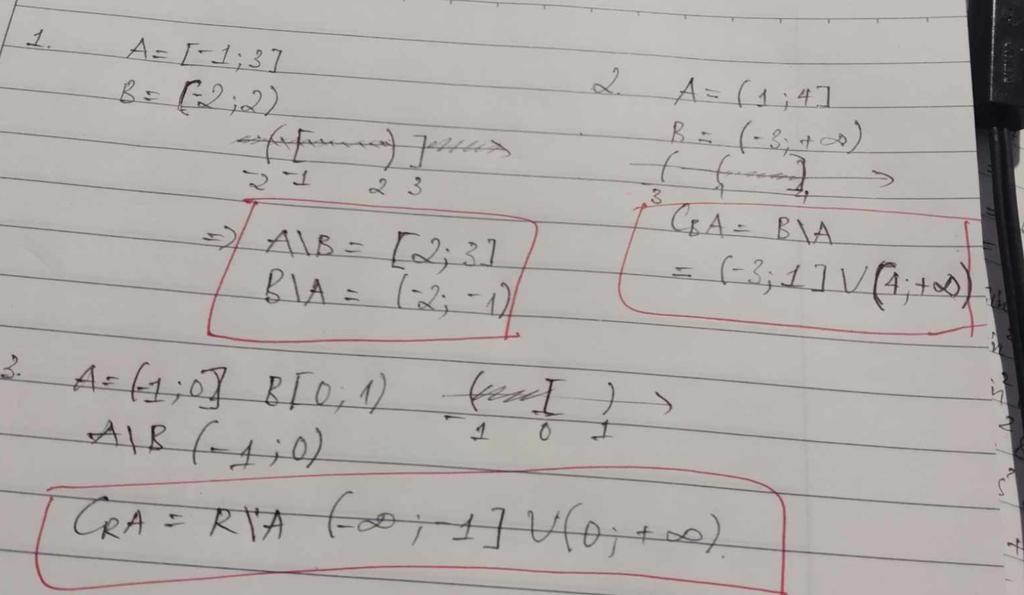 1.
A = [-1; 3]
B = [-2; 2)
-2 -1 2 3
=> A\B = [2; 3]
B\A = (-2; -1)
2. A = (1; 4]
B = (-3; +∞)
-3 1 4
CBA = B\A
= (-3; 1] ∪ (4; +∞)
3. A = (-1; 0] B[0; 1)
-1 0 1
A\B (-1; 0)
CRA = R\A (-∞; -1] ∪ (0; +∞).